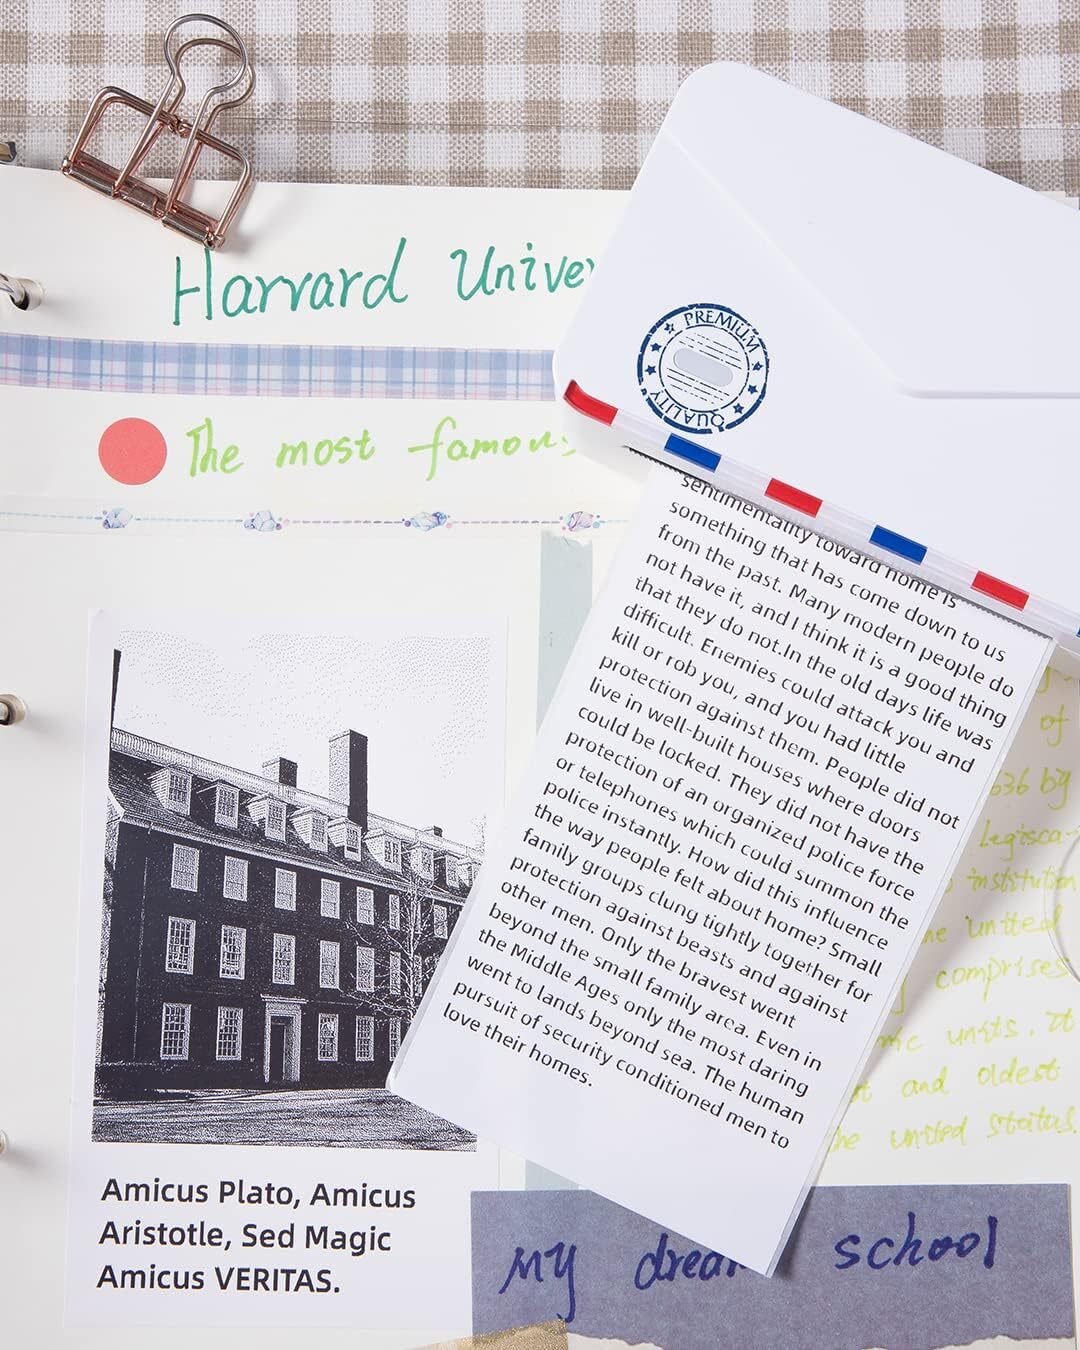 Harvard Unive
PREMIUM
QUALITY
The most famous
sentimentality toward home is
something that has come down to us
from the past. Many modern people do
not have it, and I think it is a good thing
that they do not.In the old days life was
difficult. Enemies could attack you and
kill or rob you, and you had little
protection against them. People did not
live in well-built houses where doors
could be locked. They did not have the
protection of an organized police force
or telephones which could summon the
police instantly. How did this influence
the way people felt about home? Small
family groups clung tightly together for
protection against beasts and against
other men. Only the bravest went
beyond the small family area. Even in
the Middle Ages only the most daring
went to lands beyond sea. The human
pursuit of security conditioned men to
love their homes.
of
636 by
Legisca-
institution
he united
comprises
mic units. It
st and oldest
he united status.
Amicus Plato, Amicus
Aristotle, Sed Magic
Amicus VERITAS.
My dream school